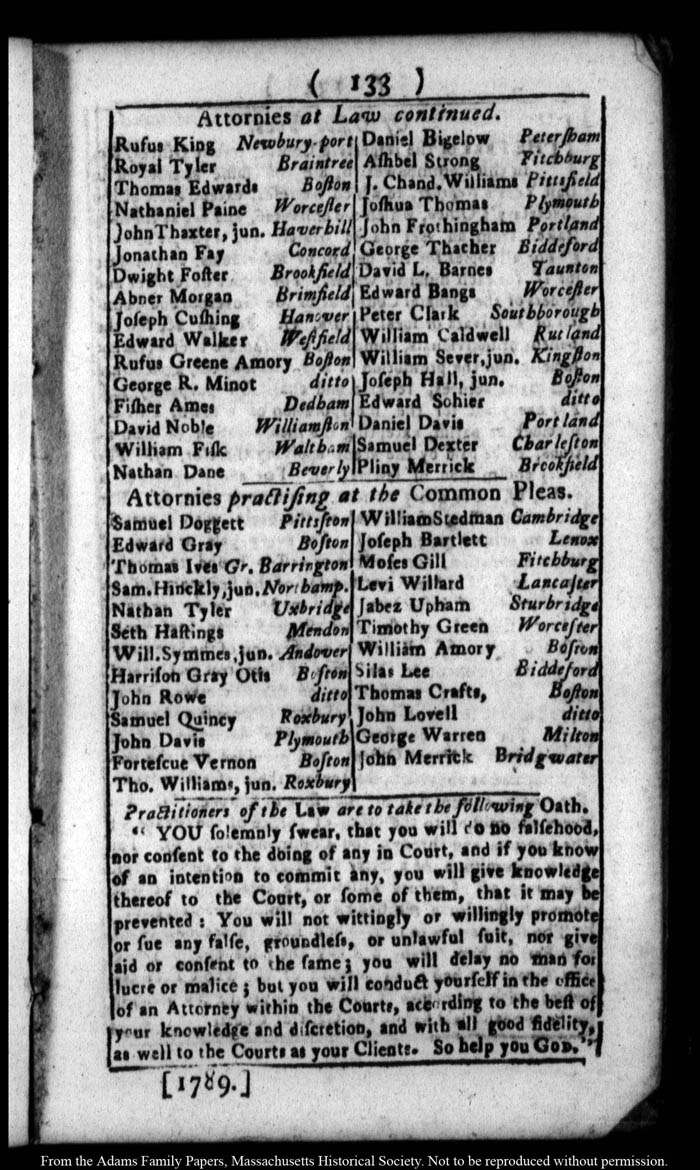 ( 133 )
Attornies at Law continued.
Rufus King Newbury-port
Royal Tyler Braintree
Thomas Edwards Boſton
Nathaniel Paine Worceſter
John Thaxter, jun. Haverhill
Jonathan Fay Concord
Dwight Foſter Brookfield
Abner Morgan Brimfield
Joſeph Cuſhing Hanover
Edward Walker Weſtfield
Rufus Greene Amory Boſton
George R. Minot ditto
Fiſher Ames Dedham
David Noble Williamſton
William Fiſk Waltham
Nathan Dane Beverly
Daniel Bigelow Peterſham
Aſhbel Strong Fitchburg
J. Chand. Williams Pittsfield
Joſhua Thomas Plymouth
John Frothingham Portland
George Thacher Biddeford
David L. Barnes Taunton
Edward Bangs Worceſter
Peter Clark Southborough
William Caldwell Rutland
William Sever, jun. Kingſton
Joſeph Hall, jun. Boſton
Edward Sohier ditto
Daniel Davis Portland
Samuel Dexter Charleſton
Pliny Merrick Brookfield
Attornies practiſing at the Common Pleas.
Samuel Doggett Pittſton
Edward Gray Boſton
Thomas Ives Gr. Barrington
Sam. Hinckly, jun. Northamp.
Nathan Tyler Uxbridge
Seth Haſtings Mendon
Will. Symmes, jun. Andover
Harriſon Gray Otis Boſton
John Rowe ditto
Samuel Quincy Roxbury
John Davis Plymouth
Forteſcue Vernon Boſton
Tho. Williams, jun. Roxbury
William Stedman Cambridge
Joſeph Bartlett Lenox
Moſes Gill Fitchburg
Levi Willard Lancaſter
Jabez Upham Sturbridge
Timothy Green Worceſter
William Amory Boſton
Silas Lee Biddeford
Thomas Crafts, Boſton
John Lovell ditto
George Warren Milton
John Merrick Bridgwater
Practitioners of the Law are to take the following Oath.
“ YOU ſolemnly ſwear, that you will do no falſehood,
nor conſent to the doing of any in Court, and if you know
of an intention to commit any, you will give knowledge
thereof to the Court, or ſome of them, that it may be
prevented : You will not wittingly or willingly promote
or ſue any falſe, groundleſs, or unlawful ſuit, nor give
aid or conſent to the ſame ; you will delay no man for
lucre or malice ; but you will conduct yourſelf in the office
of an Attorney within the Courts, according to the beſt of
your knowledge and diſcretion, and with all good fidelity,
as well to the Courts as your Clients. So help you GOD.”
[1789.]
From the Adams Family Papers, Massachusetts Historical Society. Not to be reproduced without permission.